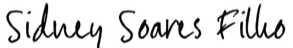 Sidney Soares Filho